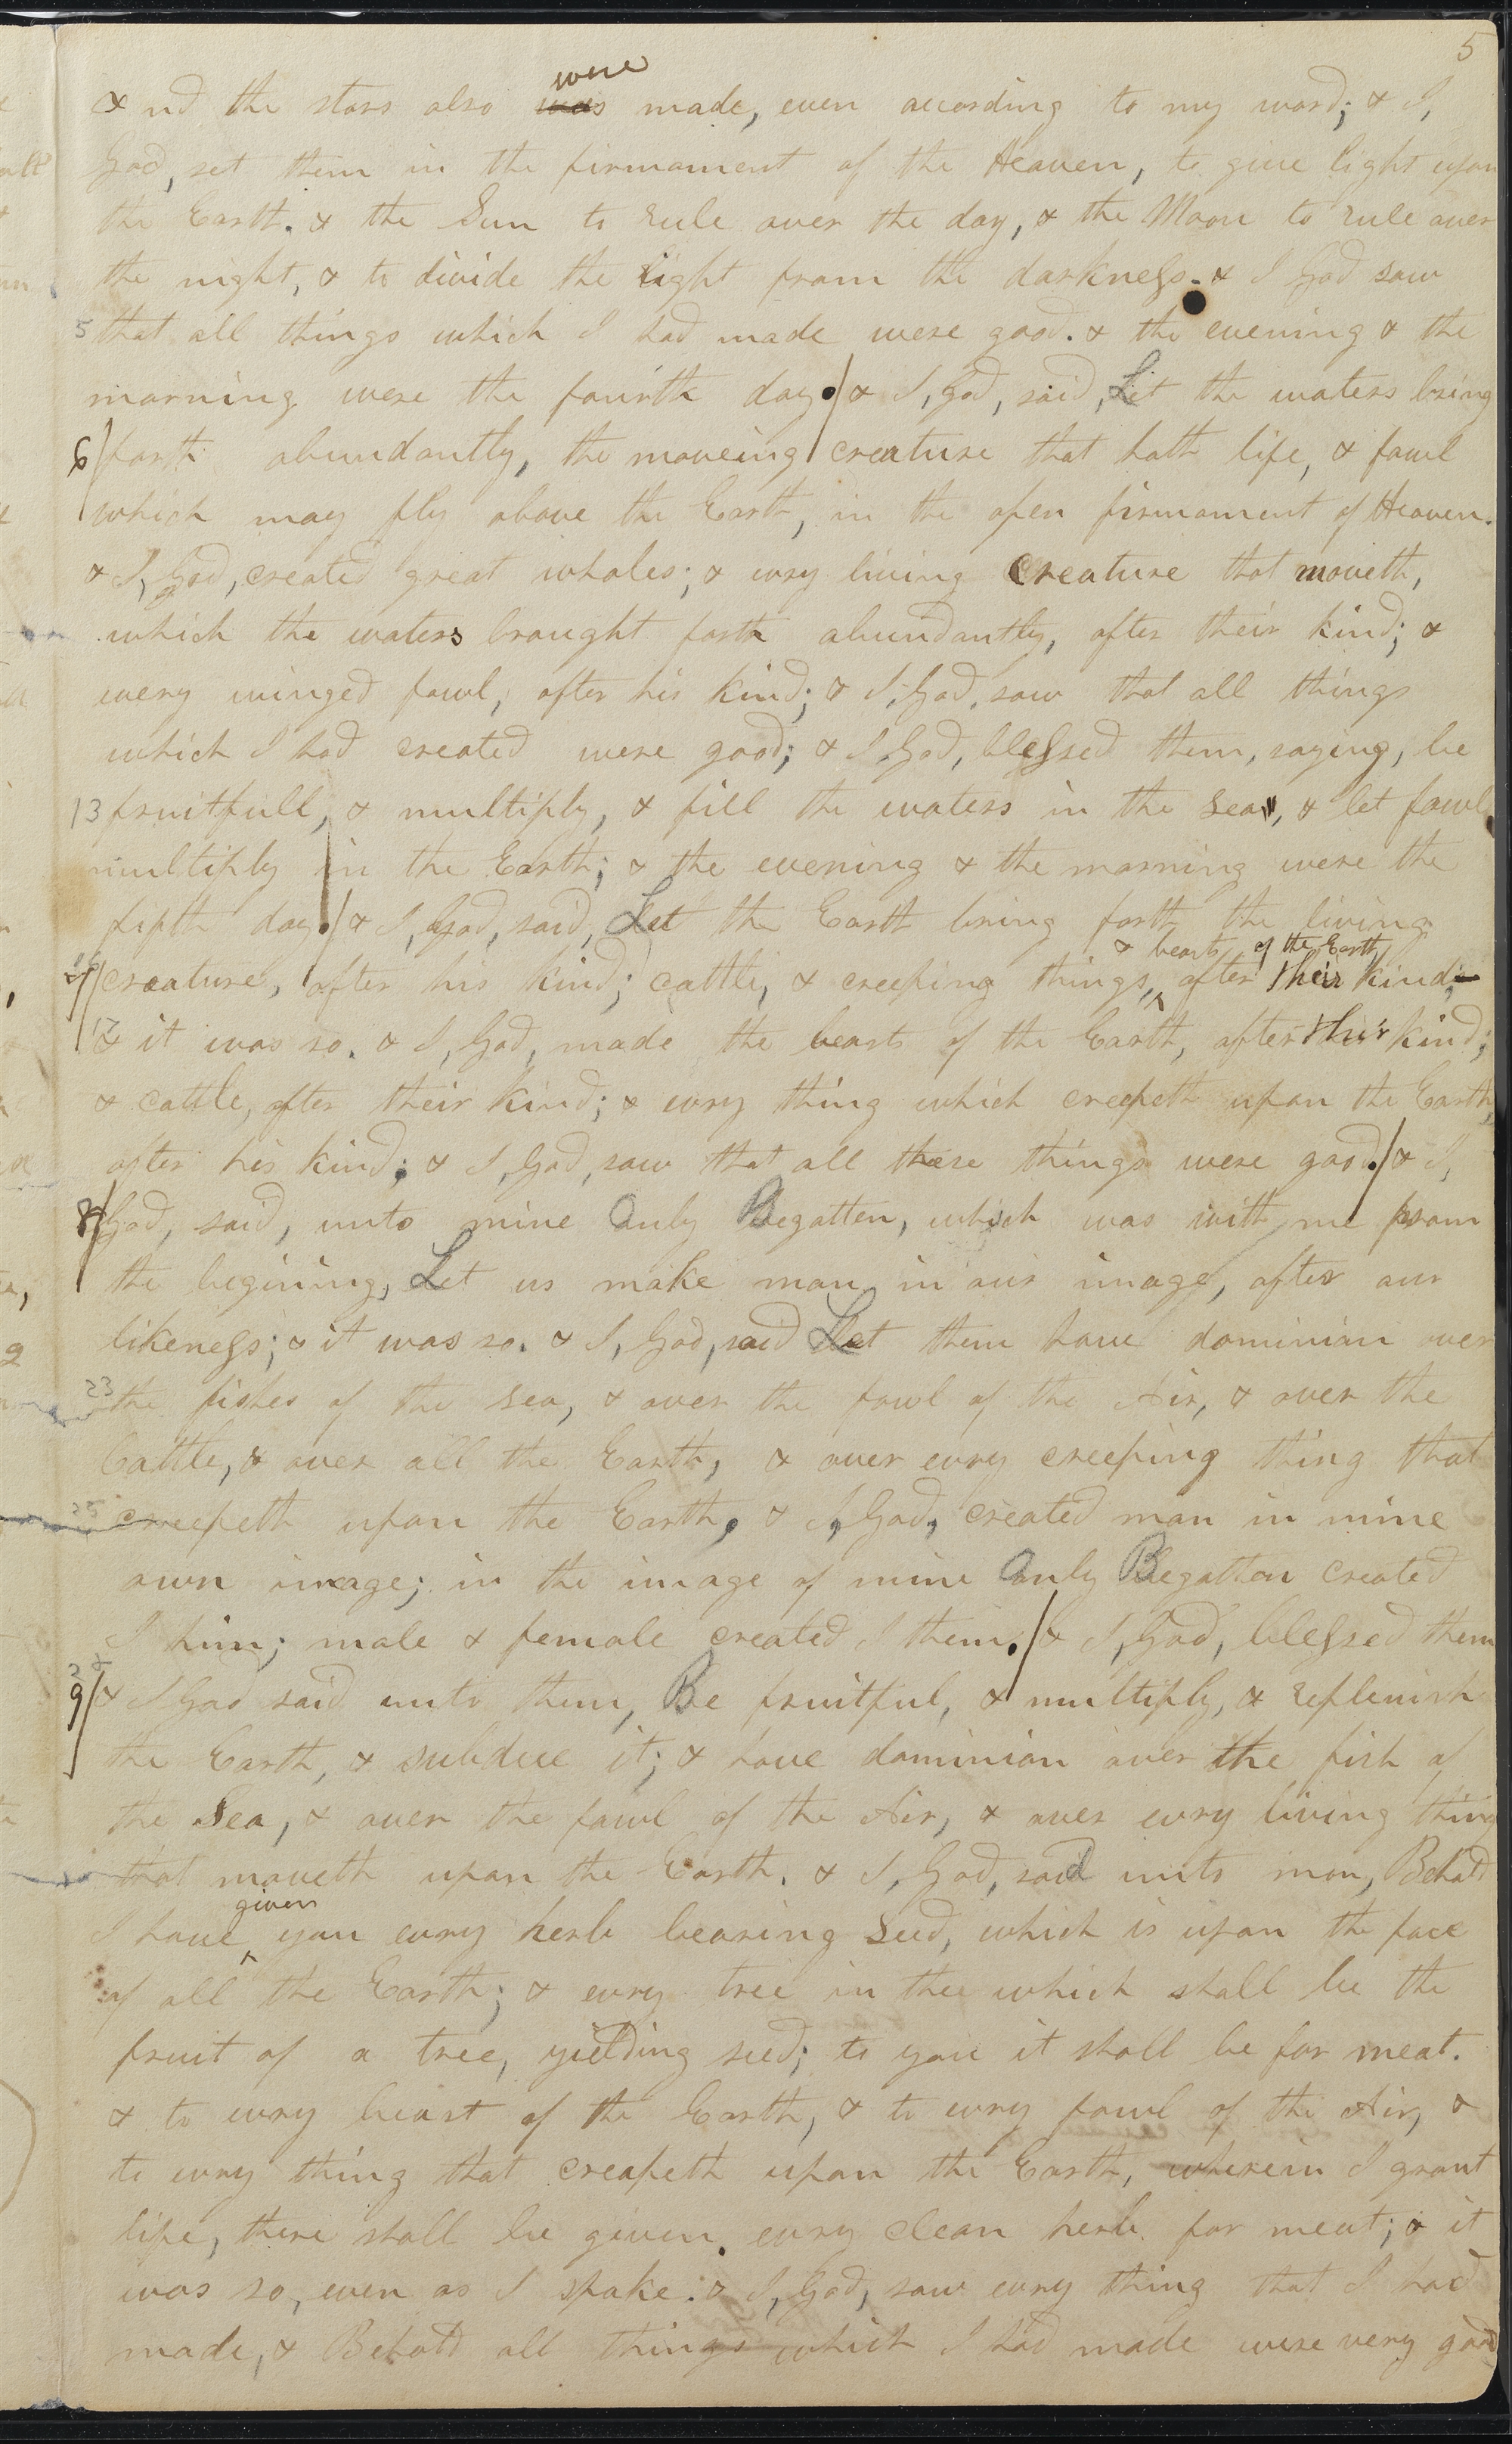 5
were
& nd the stars also was made, even according to my word; & I,
God, set them in the firmament of the Heaven, to give light upon
the Earth. & the Sun to rule over the day, & the Moon to rule over
the night, & to divide the light from the darkness. & I God saw
5 that all things which I had made were good. & the evening & the
morning were the fourth day./ & I, God, said, Let the waters bring
6/ forth abundantly, the moveing creature that hath life, & fowl
which may fly above the Earth, in the open firmament of Heaven.
& I, God, created great whales; & evry living creature that moveth,
which the waters brought forth abundantly, after their kind; &
every winged fowl, after his kind; & I, God, saw that all things
which I had created were good; & I, God, blessed them, saying, be
13 fruitfull, & multiply, & fill the waters in the sea, & let fowl
multiply in the Earth; & the evening & the morning were the
fifth day./ & I, God, said, Let the Earth bring forth the living
& beasts of the Earth,
7/ creature, after his kind; cattle, & creeping things, ^ after their kind;
17 & it was so. & I, God, made the beasts of the Earth, after their kind;
& cattle, after their kind; & evry thing which creepeth upon the Earth,
after his kind; & I, God, saw that all these things were good./ & I,
8/ God, said, unto mine Only Begotten, which was with me from
the begining, Let us make man in our image, after our
likeness; & it was so. & I, God, said Let them have dominion over
23 the fishes of the sea, & over the fowl of the Air, & over the
Cattle, & over all the Earth, & over evry creeping thing that
25 creepeth upon the Earth, & I, God, created man in mine
own image; in the image of mine Only Begotton created
I him; male & female created I them./ & I, God, blessed them
9/ & I God said unto them, Be fruitful, & multiply, & replenish
the Earth, & subdue it; & have dominion over the fish of
the Sea, & over the fowl of the Air, & over evry living thing
that moveth upon the Earth. & I, God, said unto man, Behold
given
I have ^ you evry herb bearing seed, which is upon the face
of all the Earth; & evry tree in thee which shall be the
fruit of a tree, yielding seed; to you it shall be for meat.
& to evry beast of the Earth, & to evry fowl of the Air, &
to evry thing that creapeth upon the Earth, wherein I grant
life, there shall be given evry clean herb for meat; & it
was so, even as I spake. & I, God, saw evry thing that I had
made, & Behold all things which I had made were very good